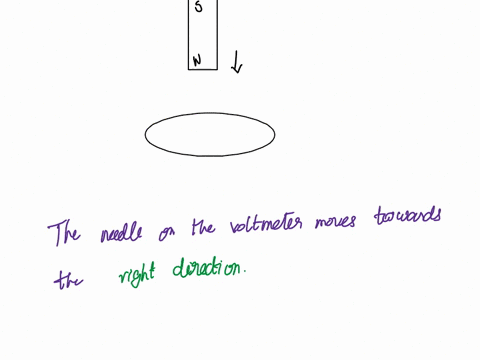 S
N
The needle on the voltmeter moves towards
the right direction.